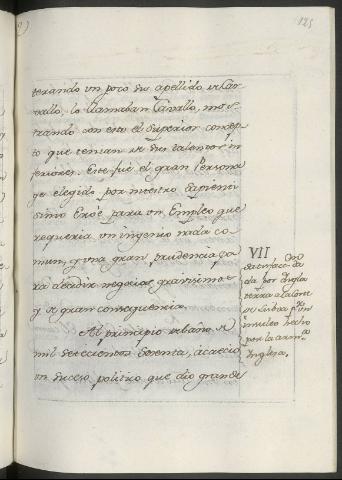 125
terando un poco su apellido de Car
vallo, lo llamaban Cavallo, mos
trando con esto el superior concep
to que tenian de sus talentos in
feriores. Este fué el gran Persona
ge elegido por nuestro Sapienti
simo Eroe para un Empleo que
requeria un ingenio nada co
mun, y una gran prudencia pa
ra decidir negocios gravisimos
y de gran consequencia.
Al principio del año de
mil setecientos sesenta, acaeció
un suceso politico que dio grande
VII
Satisfac.on da
da por Ingla
terra a la Corte
de Lisboa p.r un
insulto hecho
por la arm.a
Inglesa.